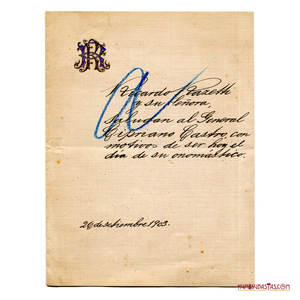 R
Ricardo Razetti
y su señora,
saludan al General
Cipriano Castro, con
motivo de ser hoy el
día de su onomástico.
26 de setiembre 1903.